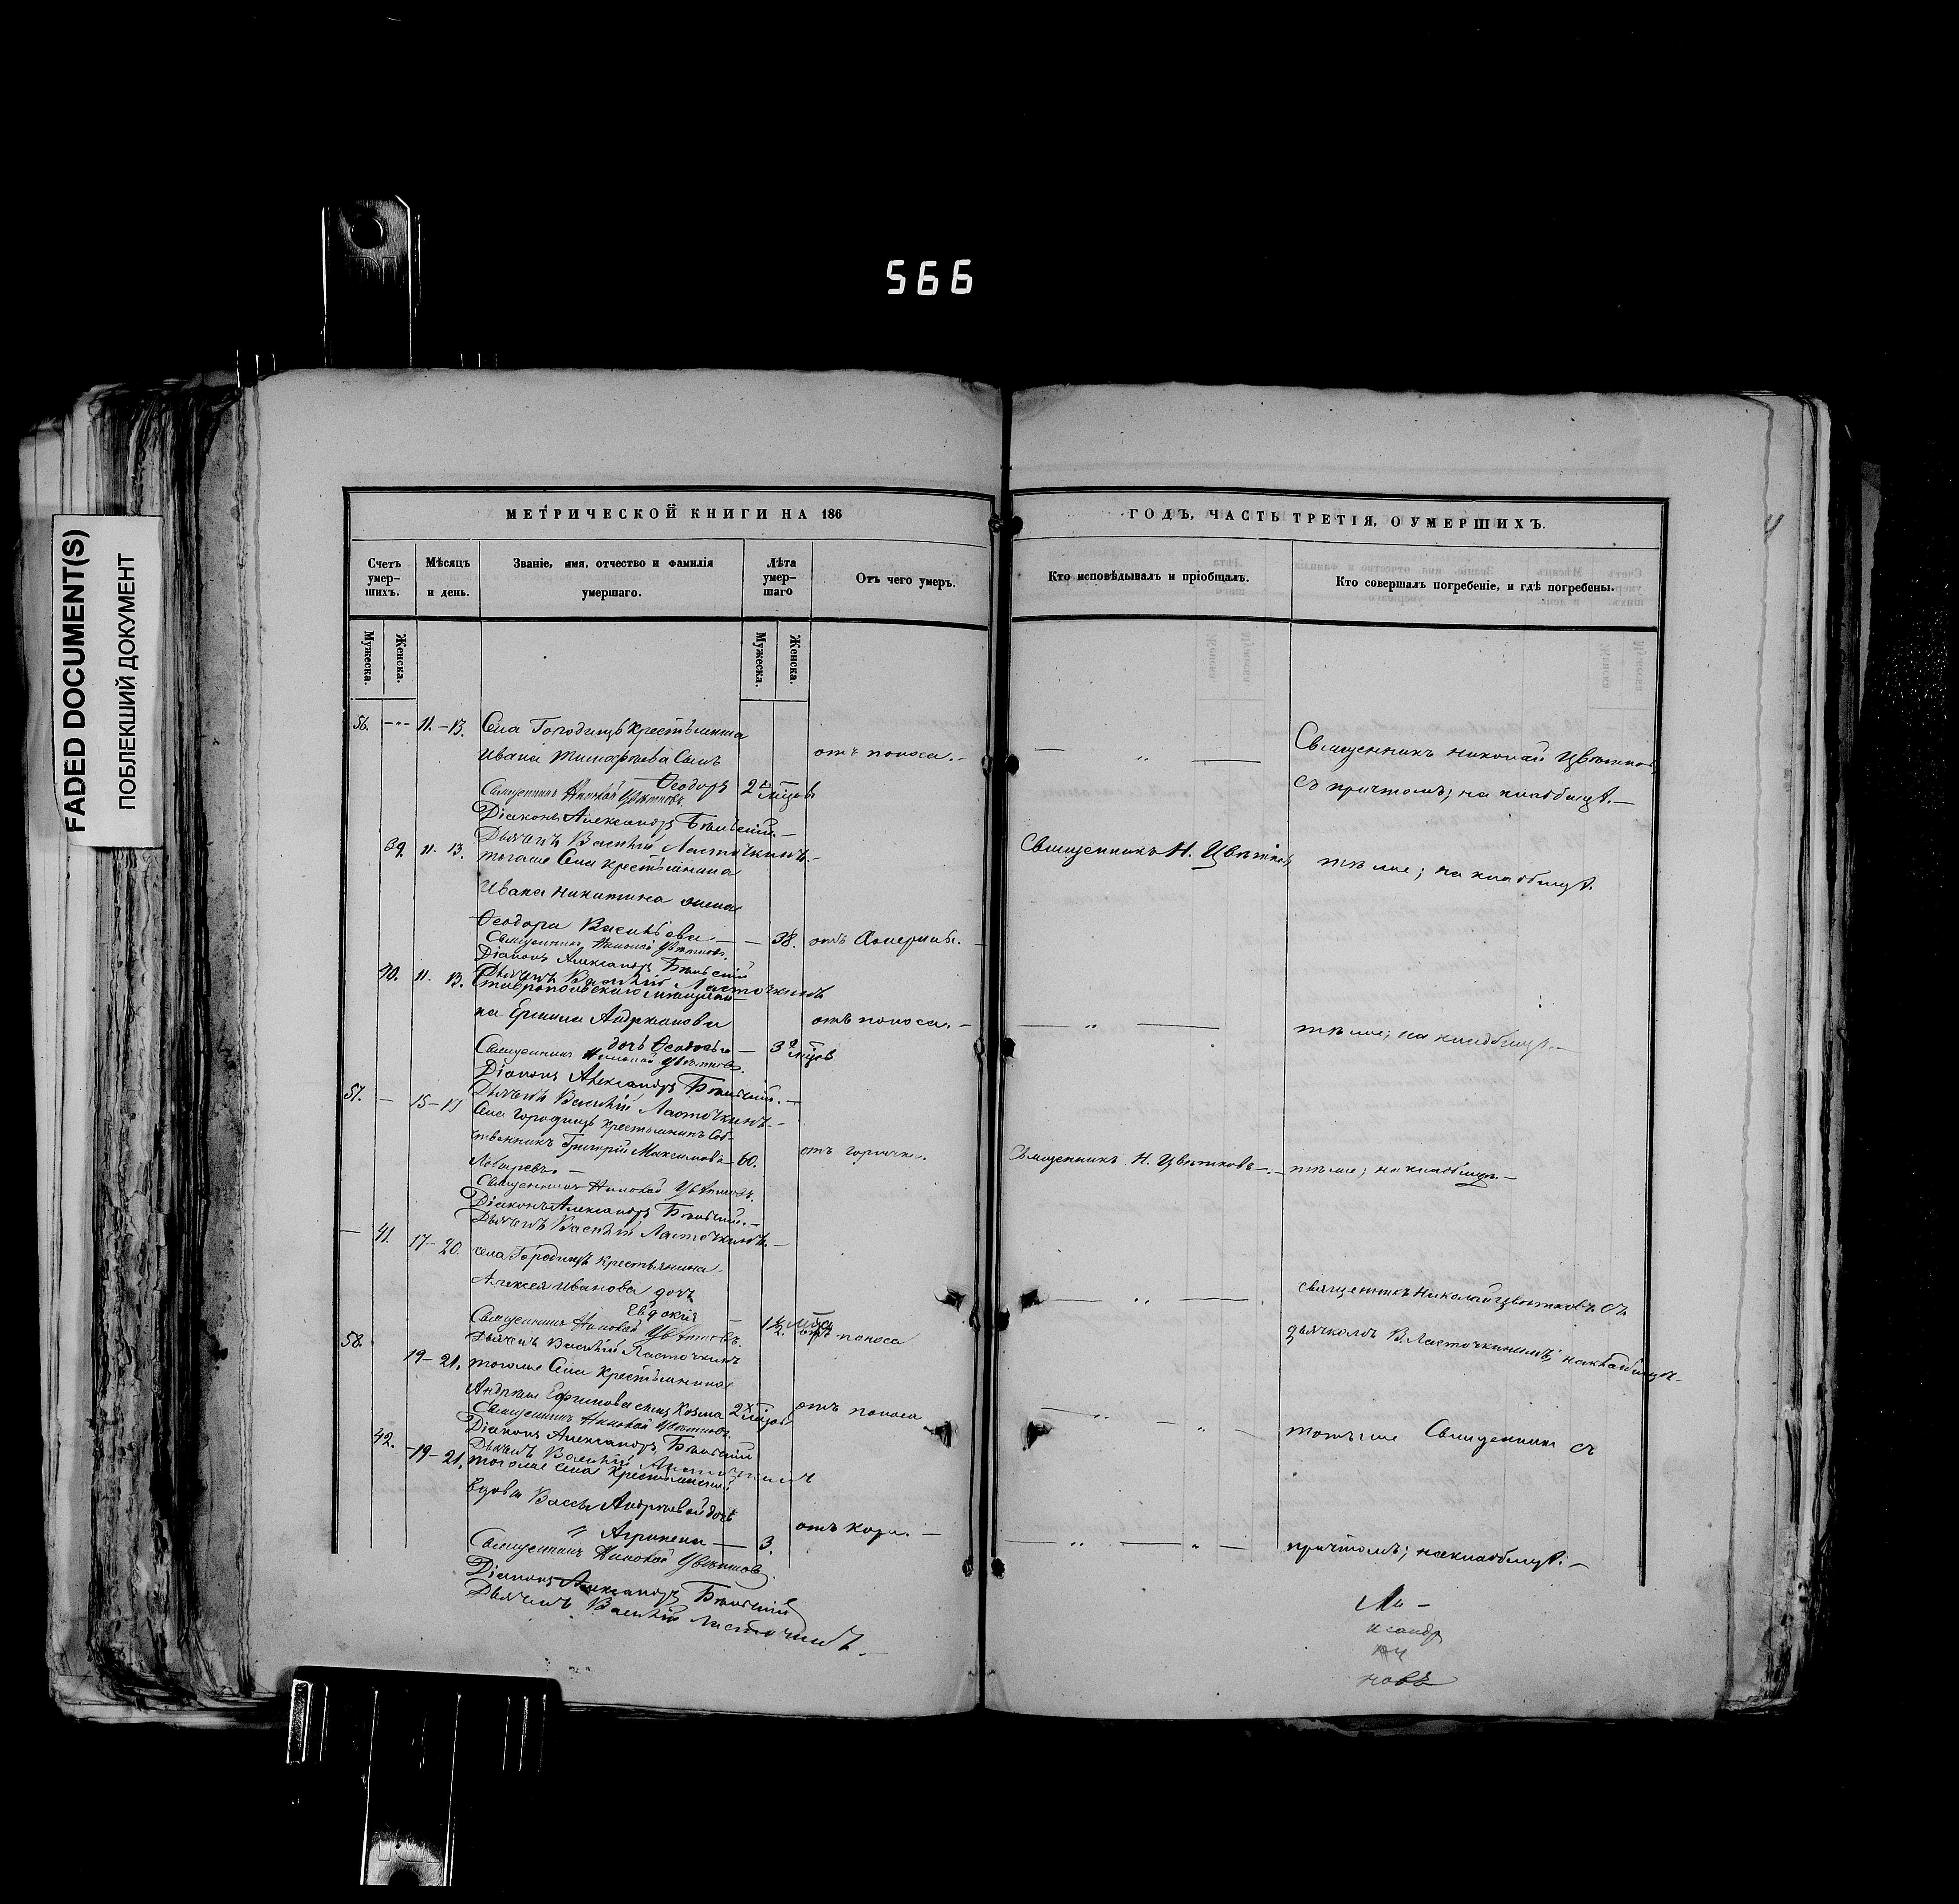 566
FADED DOCUMENT(S)
ПОБЛЕКШИЙ ДОКУМЕНТ
МЕТРИЧЕСКОЙ КНИГИ НА 186
Счетъ умер-шихъ.
Мѣсяцъ и день.
Званіе, имя, отчество и фамилія умершаго.
Лѣта умер-шаго
Отъ чего умеръ.
Мужеска.
Женска.
Мужеска.
Женска.
56. 11.-13. Села Городищъ крестьянина
Ивана сынъ отъ поноса.-
Ѳеодоръ 2хъ
Священникъ Николай Цвѣтковъ
Діаконъ Александръ
Дьячекъ Василій Ласточкинъ.-
39. 11. 13. тогоже села крестьянина
Ивана Никитина жена
Ѳеодора Васильева — — 38. отъ холеры.
Священникъ Николай Цвѣтковъ.
Діаконъ Александръ
Дьячекъ Василій Ласточкинъ
40. 11. 13. Ставропольскаго мѣщани-
на Андреянова отъ поноса.-
дочь Ѳеодосья — 3хъ
Священникъ Николай Цвѣтковъ.
Діаконъ Александръ
Дьячекъ Василій Ласточкинъ.-
57. — 15-17 Села Городищъ крестьянинъ соб-
ственникъ Григорій Максимовъ 60. отъ горячки.
Священникъ Николай Цвѣтковъ.
Діаконъ Александръ
Дьячекъ Василій Ласточкинъ.-
— 41. 17-20. села Городищъ крестьянина
Алексея Иванова дочь
Евдокія
Священникъ Николай Цвѣтковъ. 1½ отъ поноса
Дьячекъ Василій Ласточкинъ
58. 19-21. тогоже села крестьянина
Ефимова сынъ Козма 2хъ отъ поноса
Священникъ Николай Цвѣтковъ.
Діаконъ Александръ
Дьячекъ Василій Ласточкинъ
42. -19-21. тогоже села крестьянской
вдовы Вассы Андреевой дочь
Агрипена — 3. отъ кори. —
Священникъ Николай Цвѣтковъ
Діаконъ Александръ
Дьячекъ Василій Ласточкинъ.
ГОДЪ, ЧАСТЬ ТРЕТІЯ, О УМЕРШИХЪ.
Кто исповѣдывалъ и пріобщалъ.
Кто совершалъ погребеніе, и гдѣ погребены.
— „ — Священникъ Николай Цвѣтковъ
съ причтомъ; на кладбищѣ.—
Священникъ Н. Цвѣтковъ тѣ же; на кладбищѣ.
— „ — тѣ же; на кладбищѣ.—
Священникъ Н. Цвѣтковъ-.- тѣ же; на кладбищѣ.—
— „ — священникъ Николай Цвѣтковъ съ
дьячкомъ В. Ласточкинымъ; на кладбищѣ.
— „ — „ — тотъ же Священникъ съ
— „ — „ — причтомъ; на кладбищѣ.—
новъ